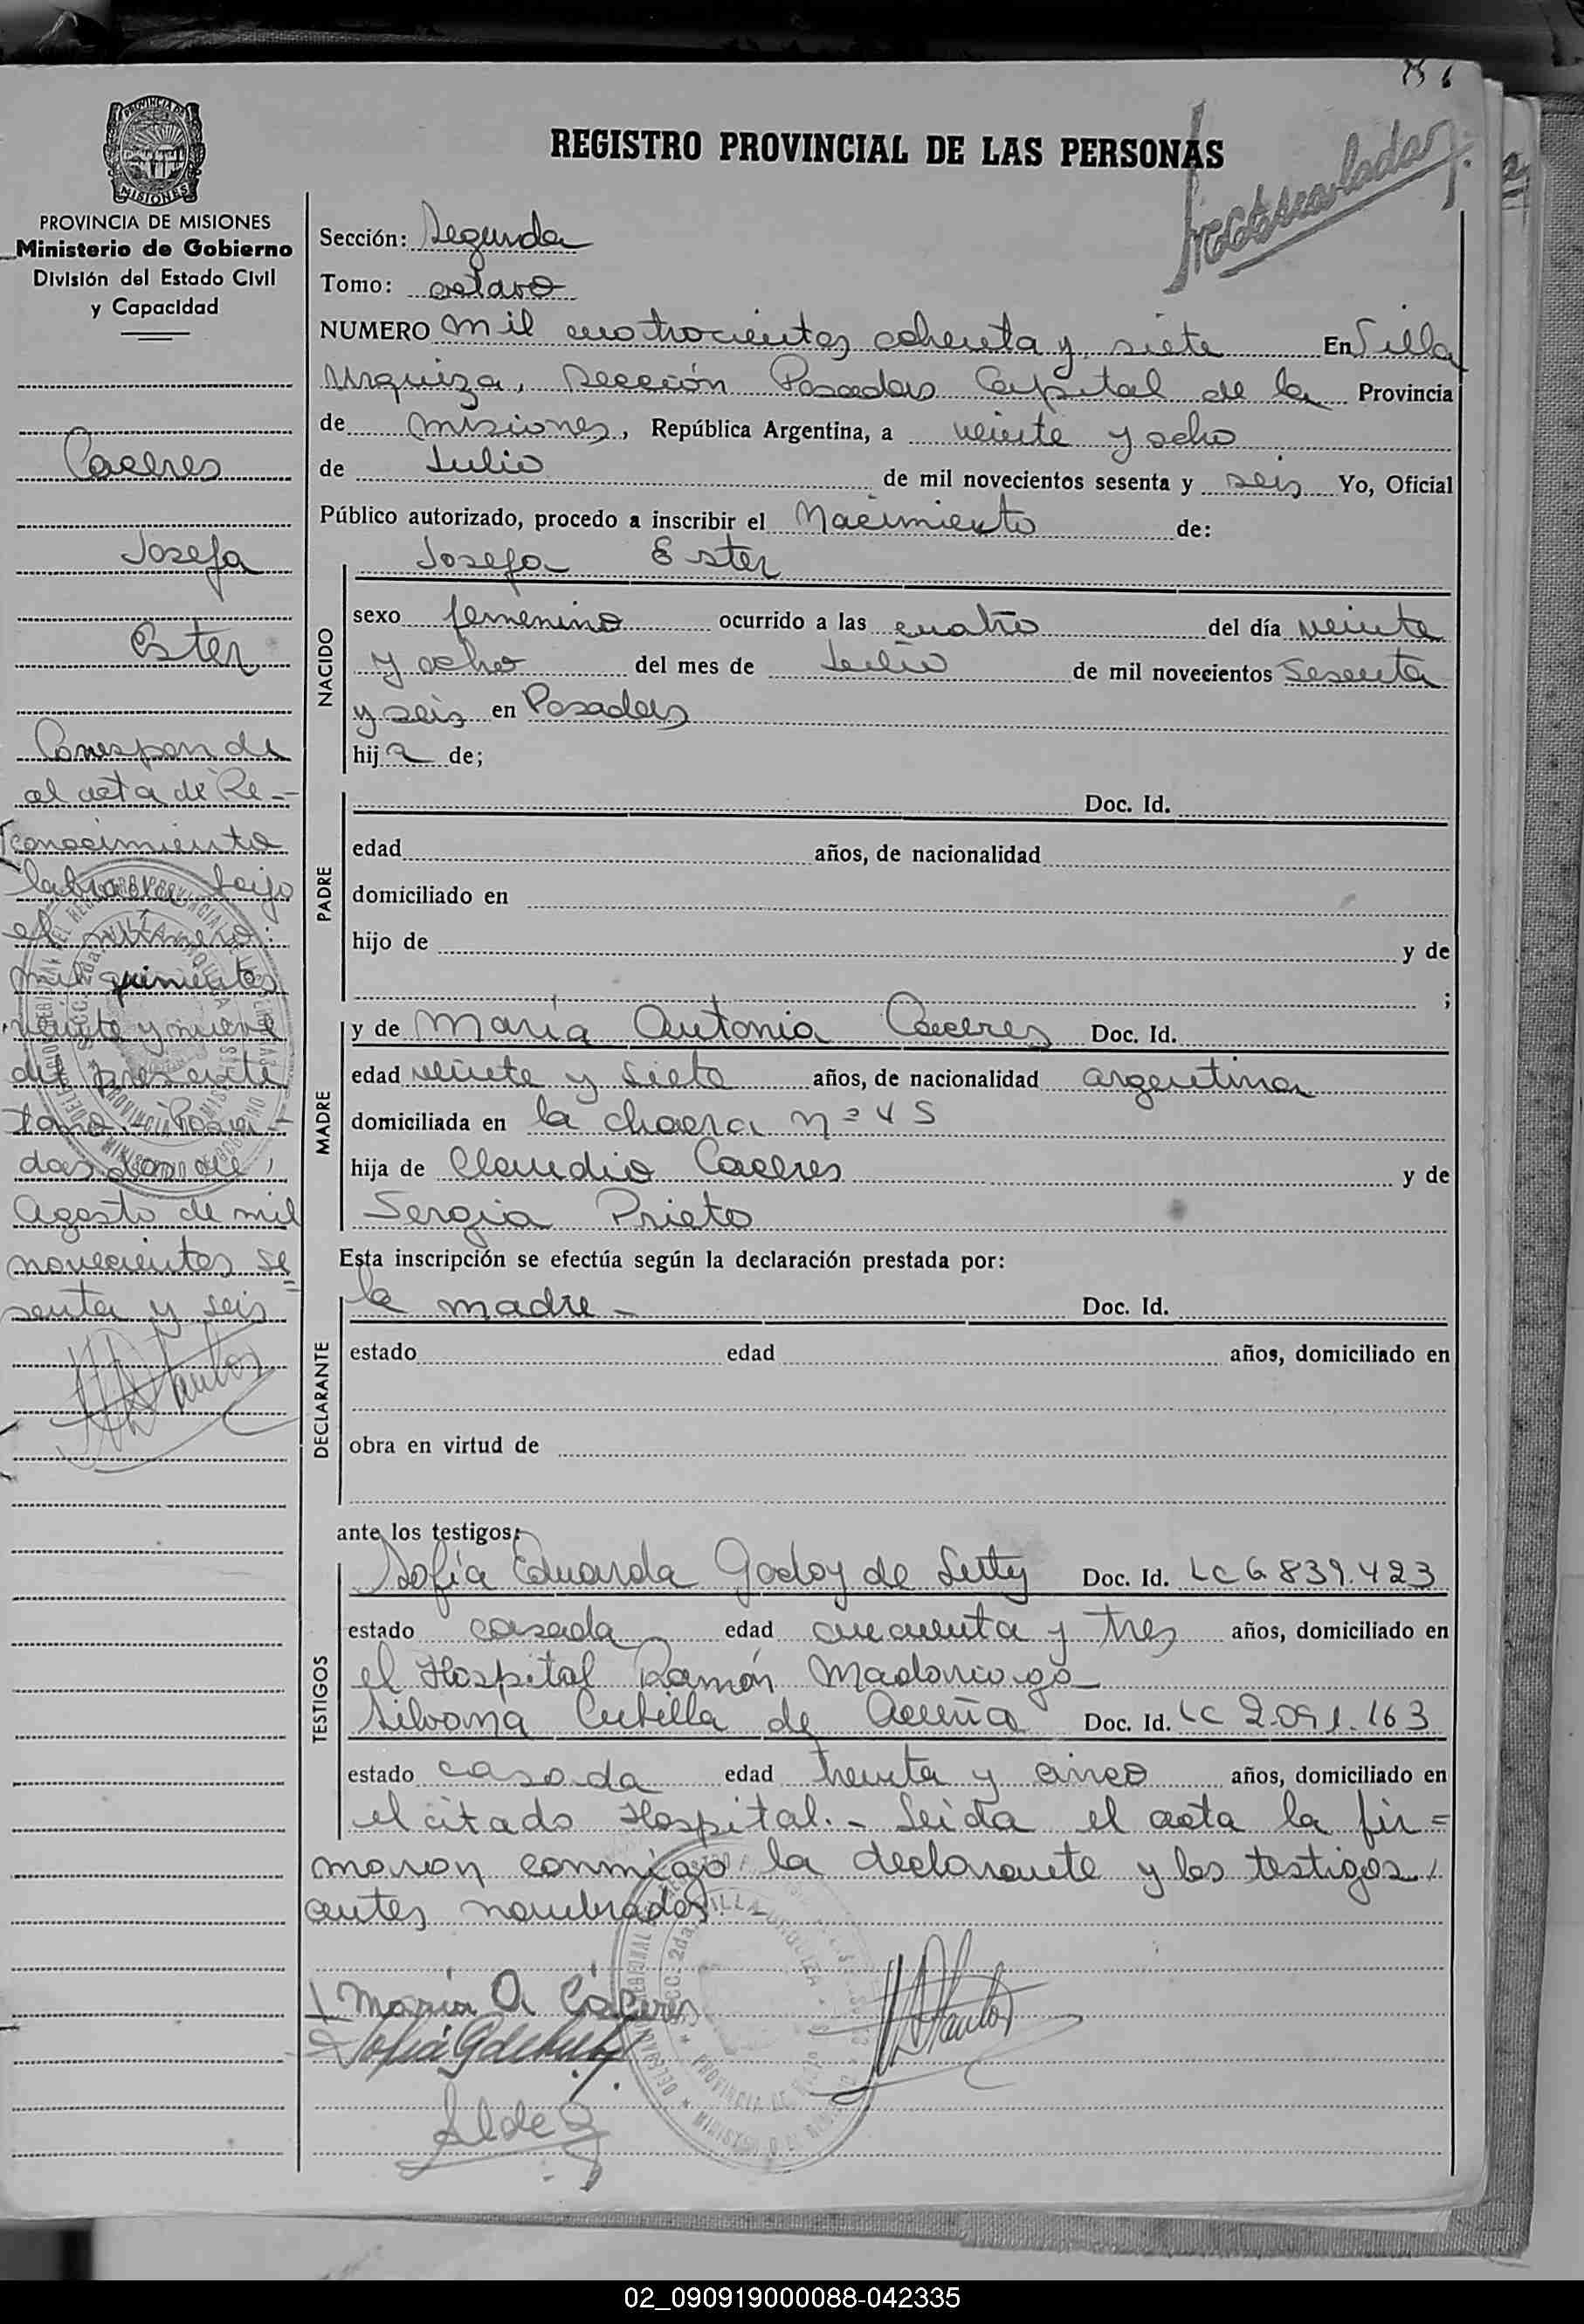 REGISTRO PROVINCIAL DE LAS PERSONAS
PROVINCIA DE MISIONES
Ministerio de Gobierno
División del Estado Civil
y Capacidad
Caceres
Josefa
Ester
Corresponde
al acta de Re-
conocimiento
labrada bajo
el número:
mil quinientos
veinte y nueve
del presente
tomo. Posa-
das, dos de
Agosto de mil
novecientos se
senta y seis
Sección: Segunda
Tomo: octavo
NUMERO mil cuatrocientos ochenta y siete En Villa
Urquiza, Sección Posadas Capital de la Provincia
de misiones, República Argentina, a veinte y ocho
de Julio de mil novecientos sesenta y seis Yo, Oficial
Público autorizado, procedo a inscribir el Nacimiento de:
NACIDO
Josefa Ester
sexo femenino ocurrido a las cuatro del día veinte
y ocho del mes de Julio de mil novecientos sesenta
y seis en Posadas
hija de;
PADRE
Doc. Id.
edad años, de nacionalidad
domiciliado en
hijo de y de
;
MADRE
y de María Antonia Caceres Doc. Id.
edad veinte y siete años, de nacionalidad argentina
domiciliada en la chacra nº 45
hija de Claudio Caceres y de
Sergia Prieto
Esta inscripción se efectúa según la declaración prestada por:
DECLARANTE
la madre - Doc. Id.
estado edad años, domiciliado en
obra en virtud de
ante los testigos:
TESTIGOS
Sofía Eduarda Godoy de Doc. Id. LC 6.839.423
estado casada edad cuarenta y tres años, domiciliado en
el Hospital Ramón Madariaga
Silvana Cubilla de Acuña Doc. Id. LC 2.091.163
estado casada edad treinta y cinco años, domiciliado en
el citado Hospital.- Leida el acta la fir=
maron conmigo la declarante y los testigos
antes nombrados.-
María A. Cáceres
02_090919000088-042335